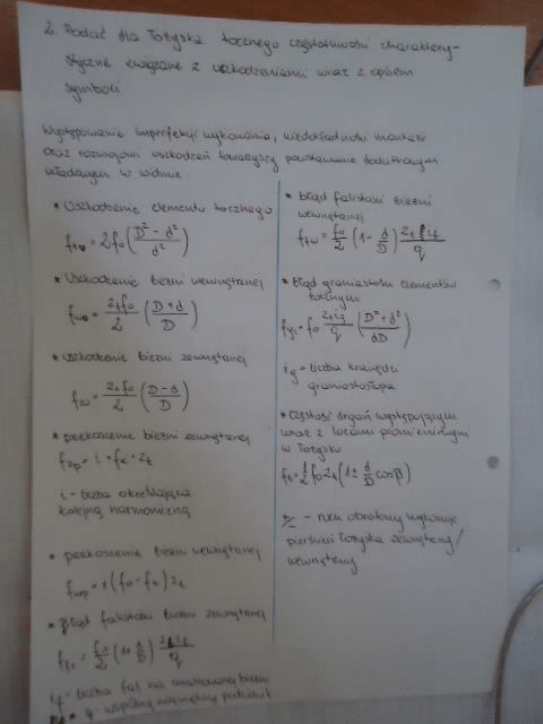 2. Podać dla łożyska tocznego częstotliwości charaktery-
styczne związane z uszkodzeniami wraz z opisem
symboli
Występowanie imperfekcji wykonania, niedokładności montażu
oraz rozwojowi uszkodzeń towarzyszy powstawanie dodatkowym
składowym w widmie
• Uszkodzenie elementu tocznego
= 2f₀ (D² - d² / d²)
• Uszkodzenie bieżni wewnętrznej
= z₁f₀/2 (D+d / D)
• uszkodzenie bieżni zewnętrznej
= z₁f₀/2 (D-d / D)
• przekoszenie bieżni zewnętrznej
f = i · fₖ · z₁
i - liczba określająca
kolejną harmoniczną
• przekoszenie bieżni wewnętrznej
= i (f₀ - fₖ) z₁
• Błąd falistości bieżni zewnętrznej
(1+ d/D)
if - liczba fal na obwodzie bieżni
q - wspólny największy
• błąd falistości bieżni
wewnętrznej
= f₀/2 (1 - d/D)
• błąd graniastości elementów
tocznych
= f₀ (D² + d² / dD)
ig = liczba krawędzi
graniastosłupa
• Częstość drgań występujących
wraz z luzami promieniowymi
w łożysku
= 1/2 f₀ z₁ (1 ± d/D cosβ)
+/- - ruch obrotowy wykonuje
pierścień łożyska zewnętrzny/
wewnętrzny